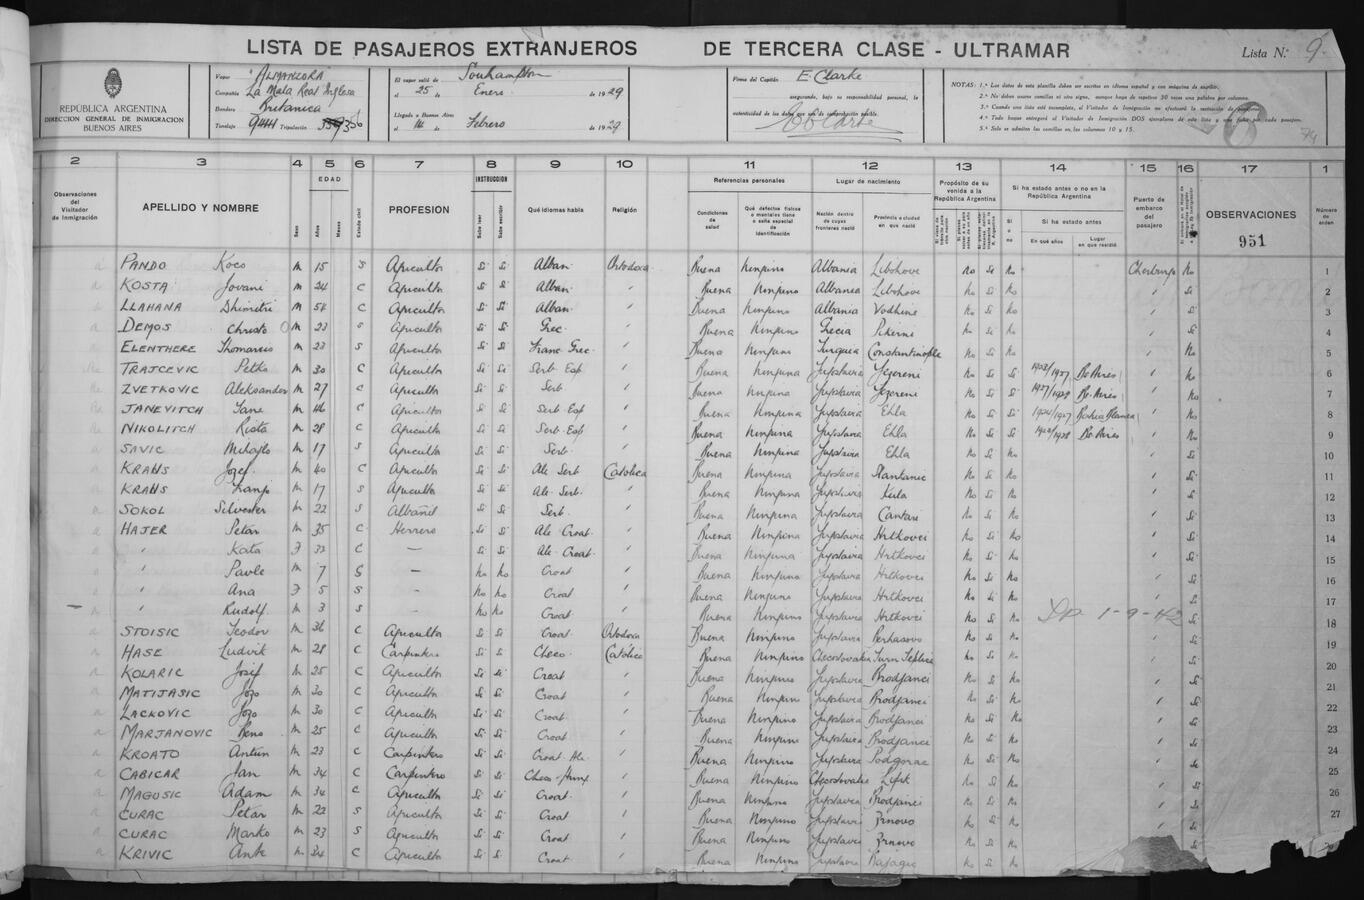 LISTA DE PASAJEROS EXTRANJEROS DE TERCERA CLASE - ULTRAMAR Lista N.º 9
REPÚBLICA ARGENTINA
DIRECCION GENERAL DE INMIGRACION
BUENOS AIRES
Vapor "ALMANZORA"
Compañía La Mala Real Inglesa
Bandera Britanica
Tonelaje 9441 Tripulación 356
El vapor salió de Southampton
el 25 de Enero de 1929
Llegado a Buenos Aires
el 14 de Febrero de 1929
Firma del Capitán E. Clarke
asegurando, bajo su responsabilidad personal, la
autenticidad de los datos que son de comprobación posible.
NOTAS: 1.ª Los datos de esta planilla deben ser escritos en idioma español y con máquina de escribir.
2.ª No deben usarse comillas ni otro signo, aunque haya de repetirse 30 veces una palabra por columna.
3.ª Cuando una lista esté incompleta, el Visitador de Inmigración no efectuará la recepción de
4.ª Todo buque entregará al Visitador de Inmigración DOS ejemplares de esta lista y una por cada pasajero.
5.ª Solo se admiten las comillas en las columnas 10 y 15.
74
2 3 4 5 6 7 8 9 10 11 12 13 14 15 16 17 1
Observaciones del Visitador de Inmigración
APELLIDO Y NOMBRE
Sexo
EDAD
Años
Meses
Estado civil
PROFESION
INSTRUCCION
Sabe leer
Sabe escribir
Qué idiomas habla
Religión
Referencias personales
Condiciones de salud
Qué defectos físicos o mentales tiene o seña especial de identificación
Lugar de nacimiento
Nación dentro de cuyas fronteras nació
Provincia o ciudad en que nació
Propósito de su venida a la República Argentina
Si ha estado antes o no en la República Argentina
Si o no
Si ha estado antes
En qué años
Lugar en que residió
Puerto de embarco del pasajero
OBSERVACIONES
951
Número de orden
PANDO Koco M 15 S Agricultor Si Si Alban Ortodoxa Buena Ninguno Albania Libohove No Si No Cherburgo No 1
KOSTA Jovani M 24 C Agricultor Si Si Alban ' Buena Ninguno Albania Libohove No Si No ' Si 2
LLAHANA Dhimitri M 54 C Agricultor Si Si Alban ' Buena Ninguno Albania Vodhine No Si No ' Si 3
DEMOS Christo M 23 S Agricultor Si Si Grec ' Buena Ninguno Grecia Pikerni No Si No ' No 4
ELENTHERE Thomarsis M 23 S Agricultor Si Si Franc Grec ' Buena Ninguno Turquia Constantinople No Si No ' No 5
TRAJCEVIC Petko M 30 C Agricultor Si Si Serb Esp ' Buena Ninguna Jugoslavia Jezereni No Si Si 1923/1927 Bs Aires ' No 6
ZVETKOVIC Aleksandar M 27 C Agricultor Si Si Serb ' Buena Ninguna Jugoslavia Jezereni No Si Si 1927/1928 Bs Aires ' No 7
JANEVITCH Jane M 46 C Agricultor Si Si Serb Esp ' Buena Ninguna Jugoslavia Ehla No Si Si 1924/1927 Bahia Blanca ' No 8
NIKOLITCH Rista M 28 C Agricultor Si Si Serb Esp ' Buena Ninguna Jugoslavia Ehla No Si Si Bs Aires ' No 9
SAVIC Mihajlo M 17 S Agricultor Si Si Serb ' Buena Ninguna Jugoslavia Ehla No Si No ' Si 10
KRAHS Jozef M 40 C Agricultor Si Si Ale Serb Catolica Buena Ninguna Jugoslavia No Si No ' Si 11
KRAHS Franjo M 17 S Agricultor Si Si Ale Serb ' Buena Ninguna Jugoslavia Kula No Si No ' Si 12
SOKOL Silvester M 22 S Albañil Si Si Serb ' Buena Ninguna Jugoslavia No Si No ' Si 13
HAJER Petar M 35 C Herrero Si Si Ale Croat ' Buena Ninguna Jugoslavia Hrtkovci No Si No ' Si 14
' Kata F 33 C — Si Si Ale Croat ' Buena Ninguna Jugoslavia Hrtkovci No Si No ' Si 15
' Pavle M 7 S — No No Croat ' Buena Ninguno Jugoslavia Hrtkovci No Si No ' Si 16
' Ana F 5 S — No No Croat ' Buena Ninguno Jugoslavia Hrtkovci No Si No ' Si 17
' Rudolf M 3 S — No No Croat ' Buena Ninguno Jugoslavia Hrtkovci No Si No 1-9-42 ' Si 18
STOISIC Teodor M 36 C Agricultor Si Si Croat Ortodoxa Buena Ninguno Jugoslavia Berkasovo No Si No ' Si 19
HASE Ludvik M 28 C Carpintero Si Si Checo Catolica Buena Ninguno Checoslovakia Turn Teplice No Si No ' Si 20
KOLARIC Josif M 25 C Agricultor Si Si Croat ' Buena Ninguno Jugoslavia Brodjanci No Si No ' Si 21
MATIJASIC Jozo M 30 C Agricultor Si Si Croat ' Buena Ninguno Jugoslavia Brodjanci No Si No ' Si 22
LACKOVIC Jozo M 30 C Agricultor Si Si Croat ' Buena Ninguno Jugoslavia Brodjanci No Si No ' Si 23
MARJANOVIC M 25 C Agricultor Si Si Croat ' Buena Ninguno Jugoslavia Brodjanci No Si No ' Si 24
KROATO Antun M 23 C Carpintero Si Si Croat Ale ' Buena Ninguno Jugoslavia Podgorac No Si No ' Si 25
CABICAR Jan M 34 C Carpintero Si Si Checo-Hung ' Buena Ninguno Checoslovakia No Si No ' Si 26
MAGUSIC Adam M 34 C Agricultor Si Si Croat ' Buena Ninguno Jugoslavia Brodjanci No Si No ' Si 27
CURAC Petar M 22 S Agricultor Si Si Croat ' Buena Ninguno Jugoslavia Zrnovo No Si No ' Si
CURAC Marko M 23 S Agricultor Si Si Croat ' Buena Ninguno Jugoslavia Zrnovo No Si No ' Si
KRIVIC Ante M 34 C Agricultor Si Si Croat ' Buena Ninguno Jugoslavia No Si No ' Si